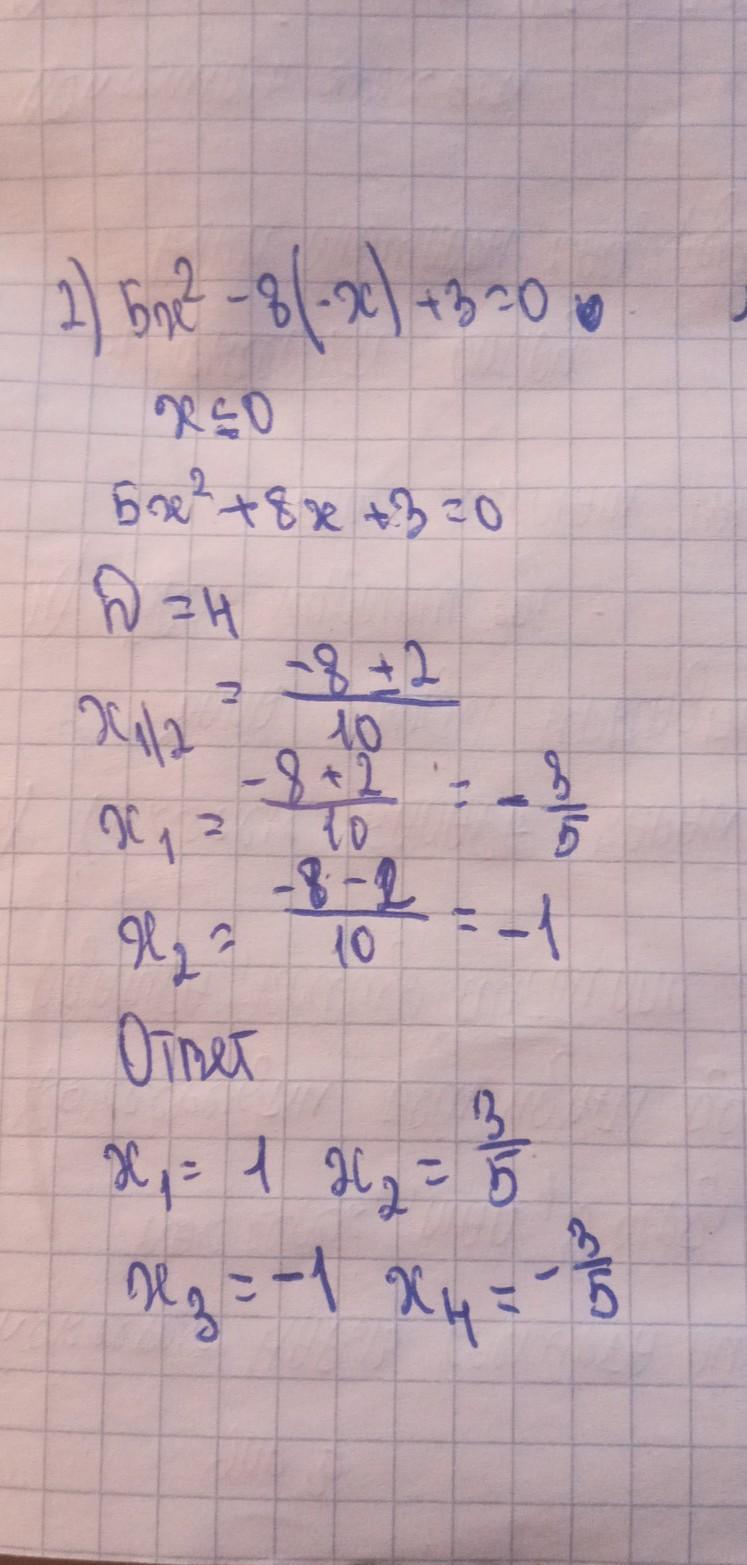 2) 5x² - 8(-x) + 3 = 0
x ≤ 0
5x² + 8x + 3 = 0
D = 4
x₁/₂ = (-8 ± 2)/10
x₁ = (-8 + 2)/10 = -3/5
x₂ = (-8 - 2)/10 = -1
Ответ
x₁ = 1 x₂ = 3/5
x₃ = -1 x₄ = -3/5